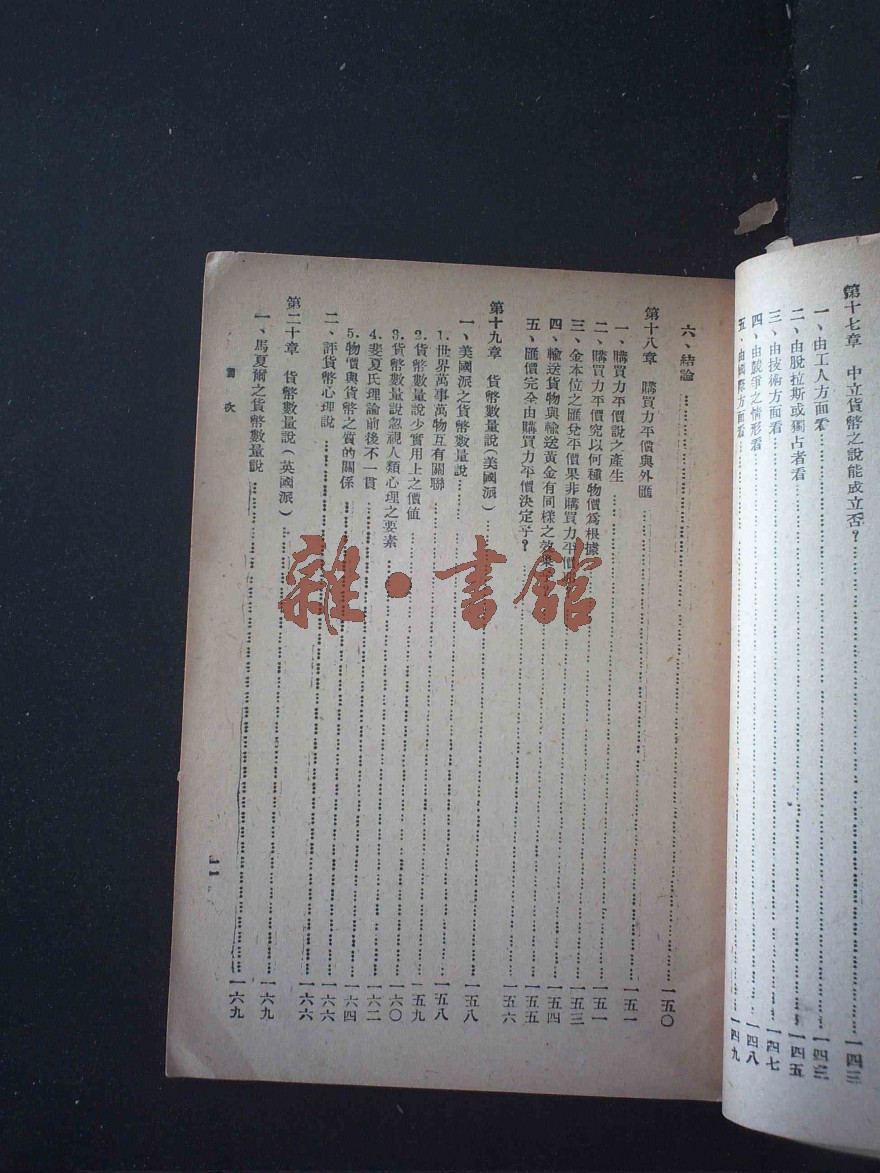 第十七章　中立貨幣之說能成立否？……一四三
一、由工人方面看……一四三
二、由脫拉斯或獨占者看……一四五
三、由技術方面看……一四七
四、由競爭之情形看……一四八
五、由國際方面看……一四九
六、結論……一五〇
第十八章　購買力平價與外匯……一五一
一、購買力平價說之產生……一五一
二、購買力平價究以何種物價爲根據……一五三
三、金本位之匯兌平價果非購買力平價……一五四
四、輸送貨物與輸送黃金有同樣之效果……一五五
五、匯價完全由購買力平價決定乎？……一五六
第十九章　貨幣數量說（美國派）……一五八
一、美國派之貨幣數量說……一五八
1.世界萬事萬物互有關聯……一五九
2.貨幣數量說少實用上之價値……一六〇
3.貨幣數量說忽視人類心理之要素……一六二
4.斐夏氏理論前後不一貫……一六四
5.物價與貨幣之質的關係……一六六
二、評貨幣心理說……一六六
第二十章　貨幣數量說（英國派）……一六九
一、馬夏爾之貨幣數量說……一六九
目次
一一
雜·書館